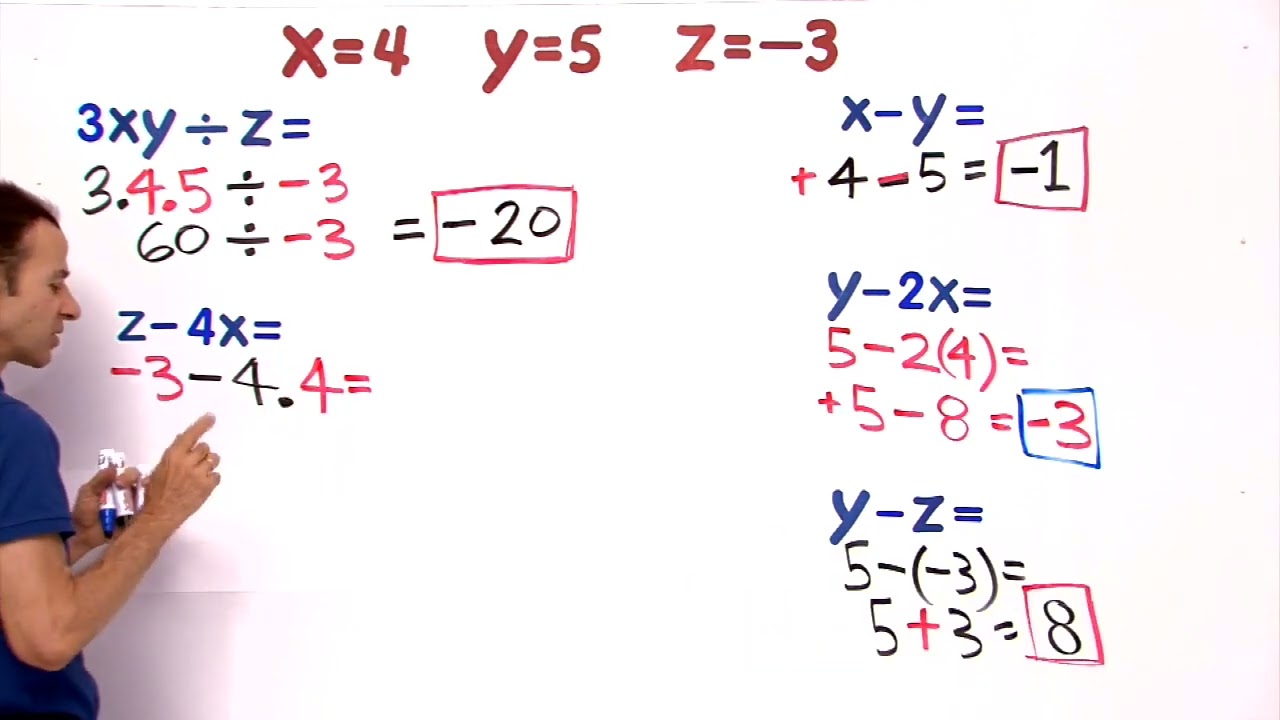 x=4 y=5 z=-3
3xy÷z=
3.4.5÷-3
60÷-3 = -20
z-4x=
-3-4.4=
x-y=
+4-5= -1
y-2x=
5-2(4)=
+5-8= -3
y-z=
5-(-3)=
5+3= 8